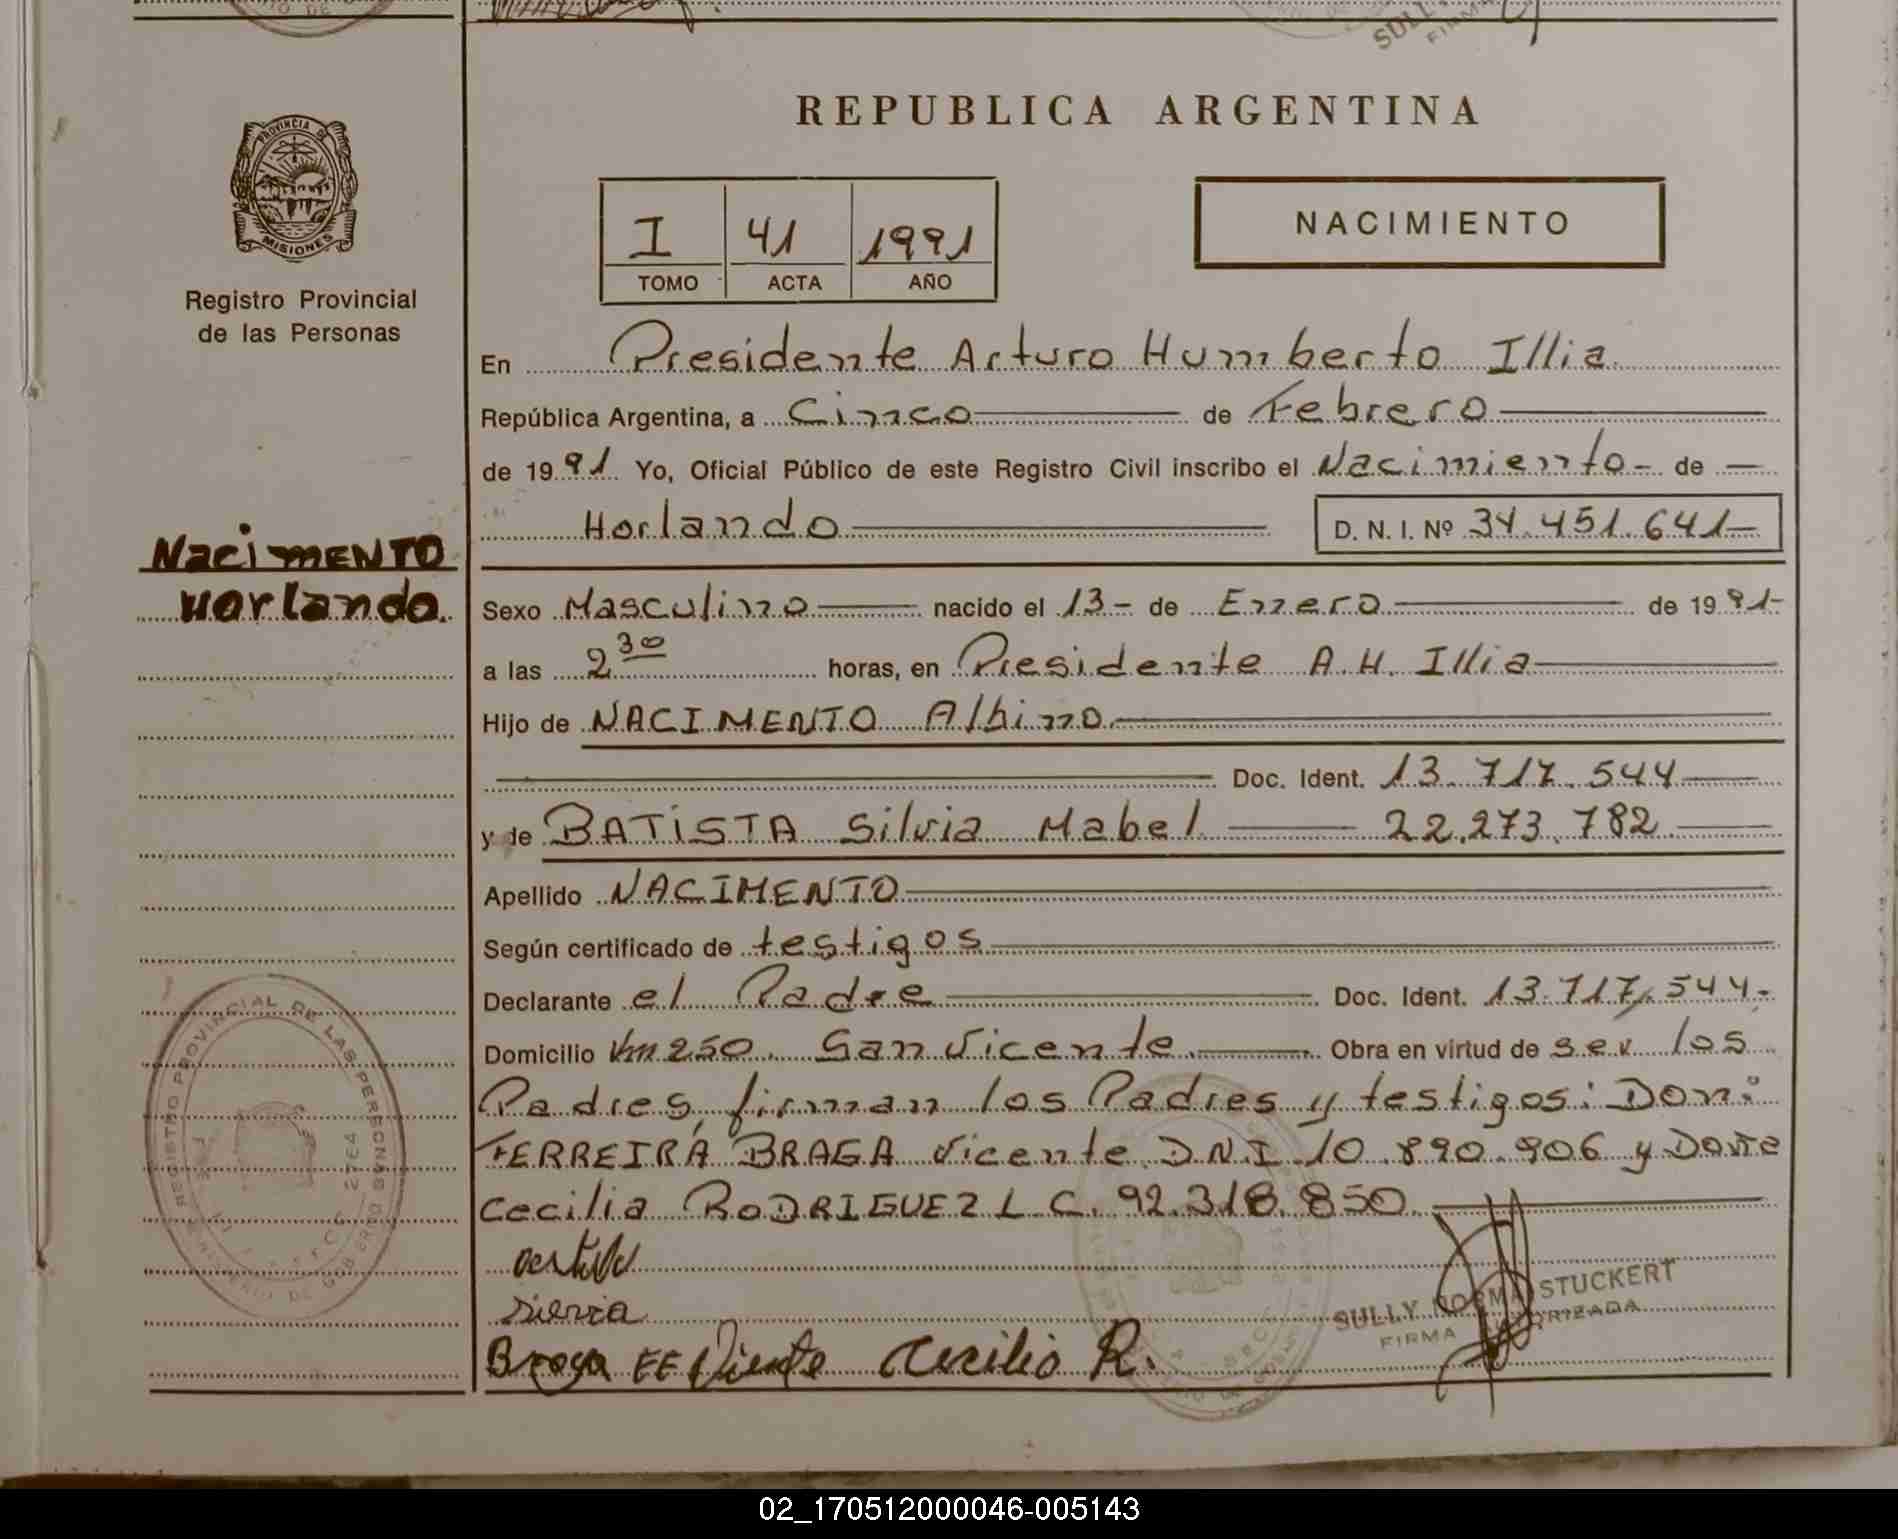 SULLY
FIRMA
PROVINCIA DE
MISIONES
Registro Provincial
de las Personas
REPUBLICA ARGENTINA
I 41 1991
TOMO ACTA AÑO
NACIMIENTO
En Presidente Arturo Humberto Illia
República Argentina, a Cinco de Febrero
de 1991 Yo, Oficial Público de este Registro Civil inscribo el Nacimiento - de —
Horlando D. N. I. Nº 34.451.641-
NaciMENTO
Horlando.
Sexo Masculino nacido el 13 - de Enero de 1991-
a las 2 30 horas, en Presidente A.H. Illia
Hijo de NACIMENTO Albino
Doc. Ident. 13.717.544
y de BATISTA Silvia Mabel 22.273.782
Apellido NACIMENTO
Según certificado de testigos
Declarante el Padre Doc. Ident. 13.717.544-
Domicilio Km 250. San Vicente Obra en virtud de ser los
Padres, firman los Padres y testigos: Don:
FERREIRA BRAGA Vicente D.N.I 10.890.906 y Doña
Cecilia RODRIGUEZ L.C. 92.318.850
REGISTRO PROVINCIAL DE LAS PERSONAS
2764
SULLY NORMA STUCKERT
FIRMA AUTORIZADA
silvia
Braga FE Vicente Cecilia R.
02_170512000046-005143